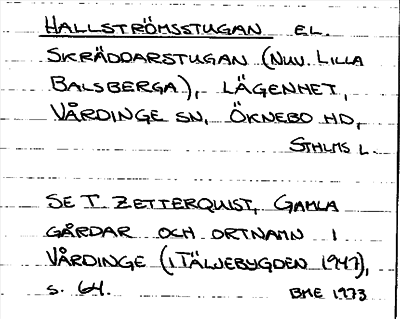 HALLSTRÖMSSTUGAN EL.
SKRÄDDARSTUGAN (NUV. LILLA
BALSBERGA), LÄGENHET,
VÅRDINGE SN, ÖKNEBO HD,
STHLMS L.
SE T. ZETTERQUIST, GAMLA
GÅRDAR OCH ORTNAMN I
VÅRDINGE (I TÄLJEBYGDEN 1947),
S. 64. BME 1973